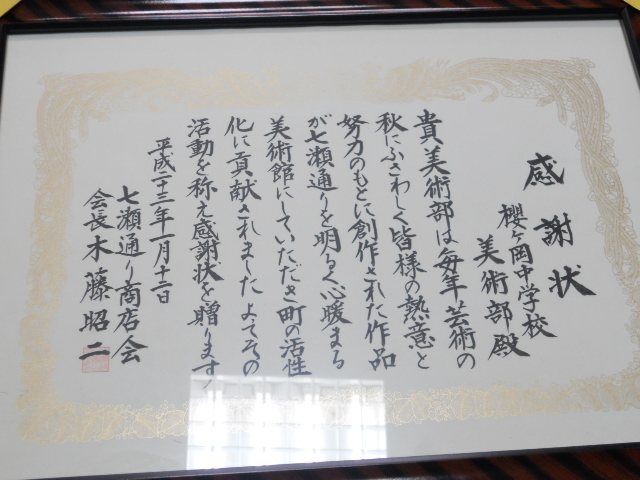 感謝状
櫻ヶ岡中学校
美術部殿
貴美術部は毎年芸術の
秋にふさわしく皆様の熱意と
努力のもとに創作された作品
が七瀬通りを明るく心暖まる
美術館にしていただき町の活性
化に貢献されましたよてその
活動を称え感謝状を贈ります
平成二十三年一月十二日
七瀬通り商店会
会長木藤昭二